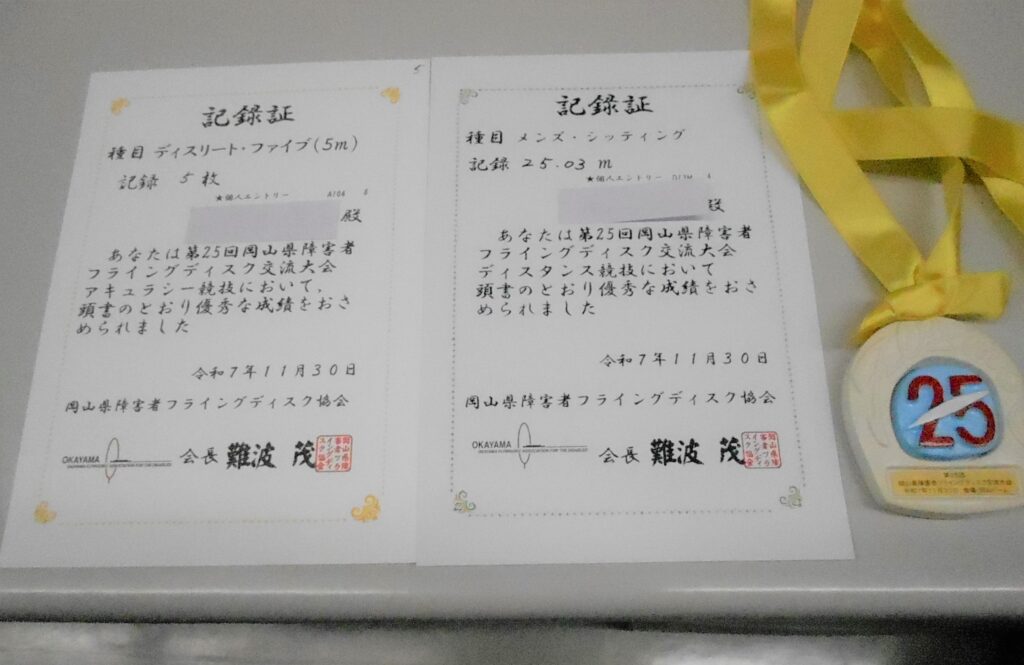 記録証
種目 ディスリート・ファイブ(5m)
記録 5枚
★個人エントリー A104 6
殿
あなたは第25回岡山県障害者
フライングディスク交流大会
アキュラシー競技において、
頭書のとおり優秀な成績をおさ
められました
令和7年11月30日
岡山県障害者フライングディスク協会
OKAYAMA
会長 難波 茂
5
記録証
種目 メンズ・シッティング
記録 25.03 m
★個人エントリー
殿
あなたは第25回岡山県障害者
フライングディスク交流大会
ディスタンス競技において
頭書のとおり優秀な成績をおさ
められました
令和7年11月30日
岡山県障害者フライングディスク協会
OKAYAMA
会長 難波 茂
25
第25回